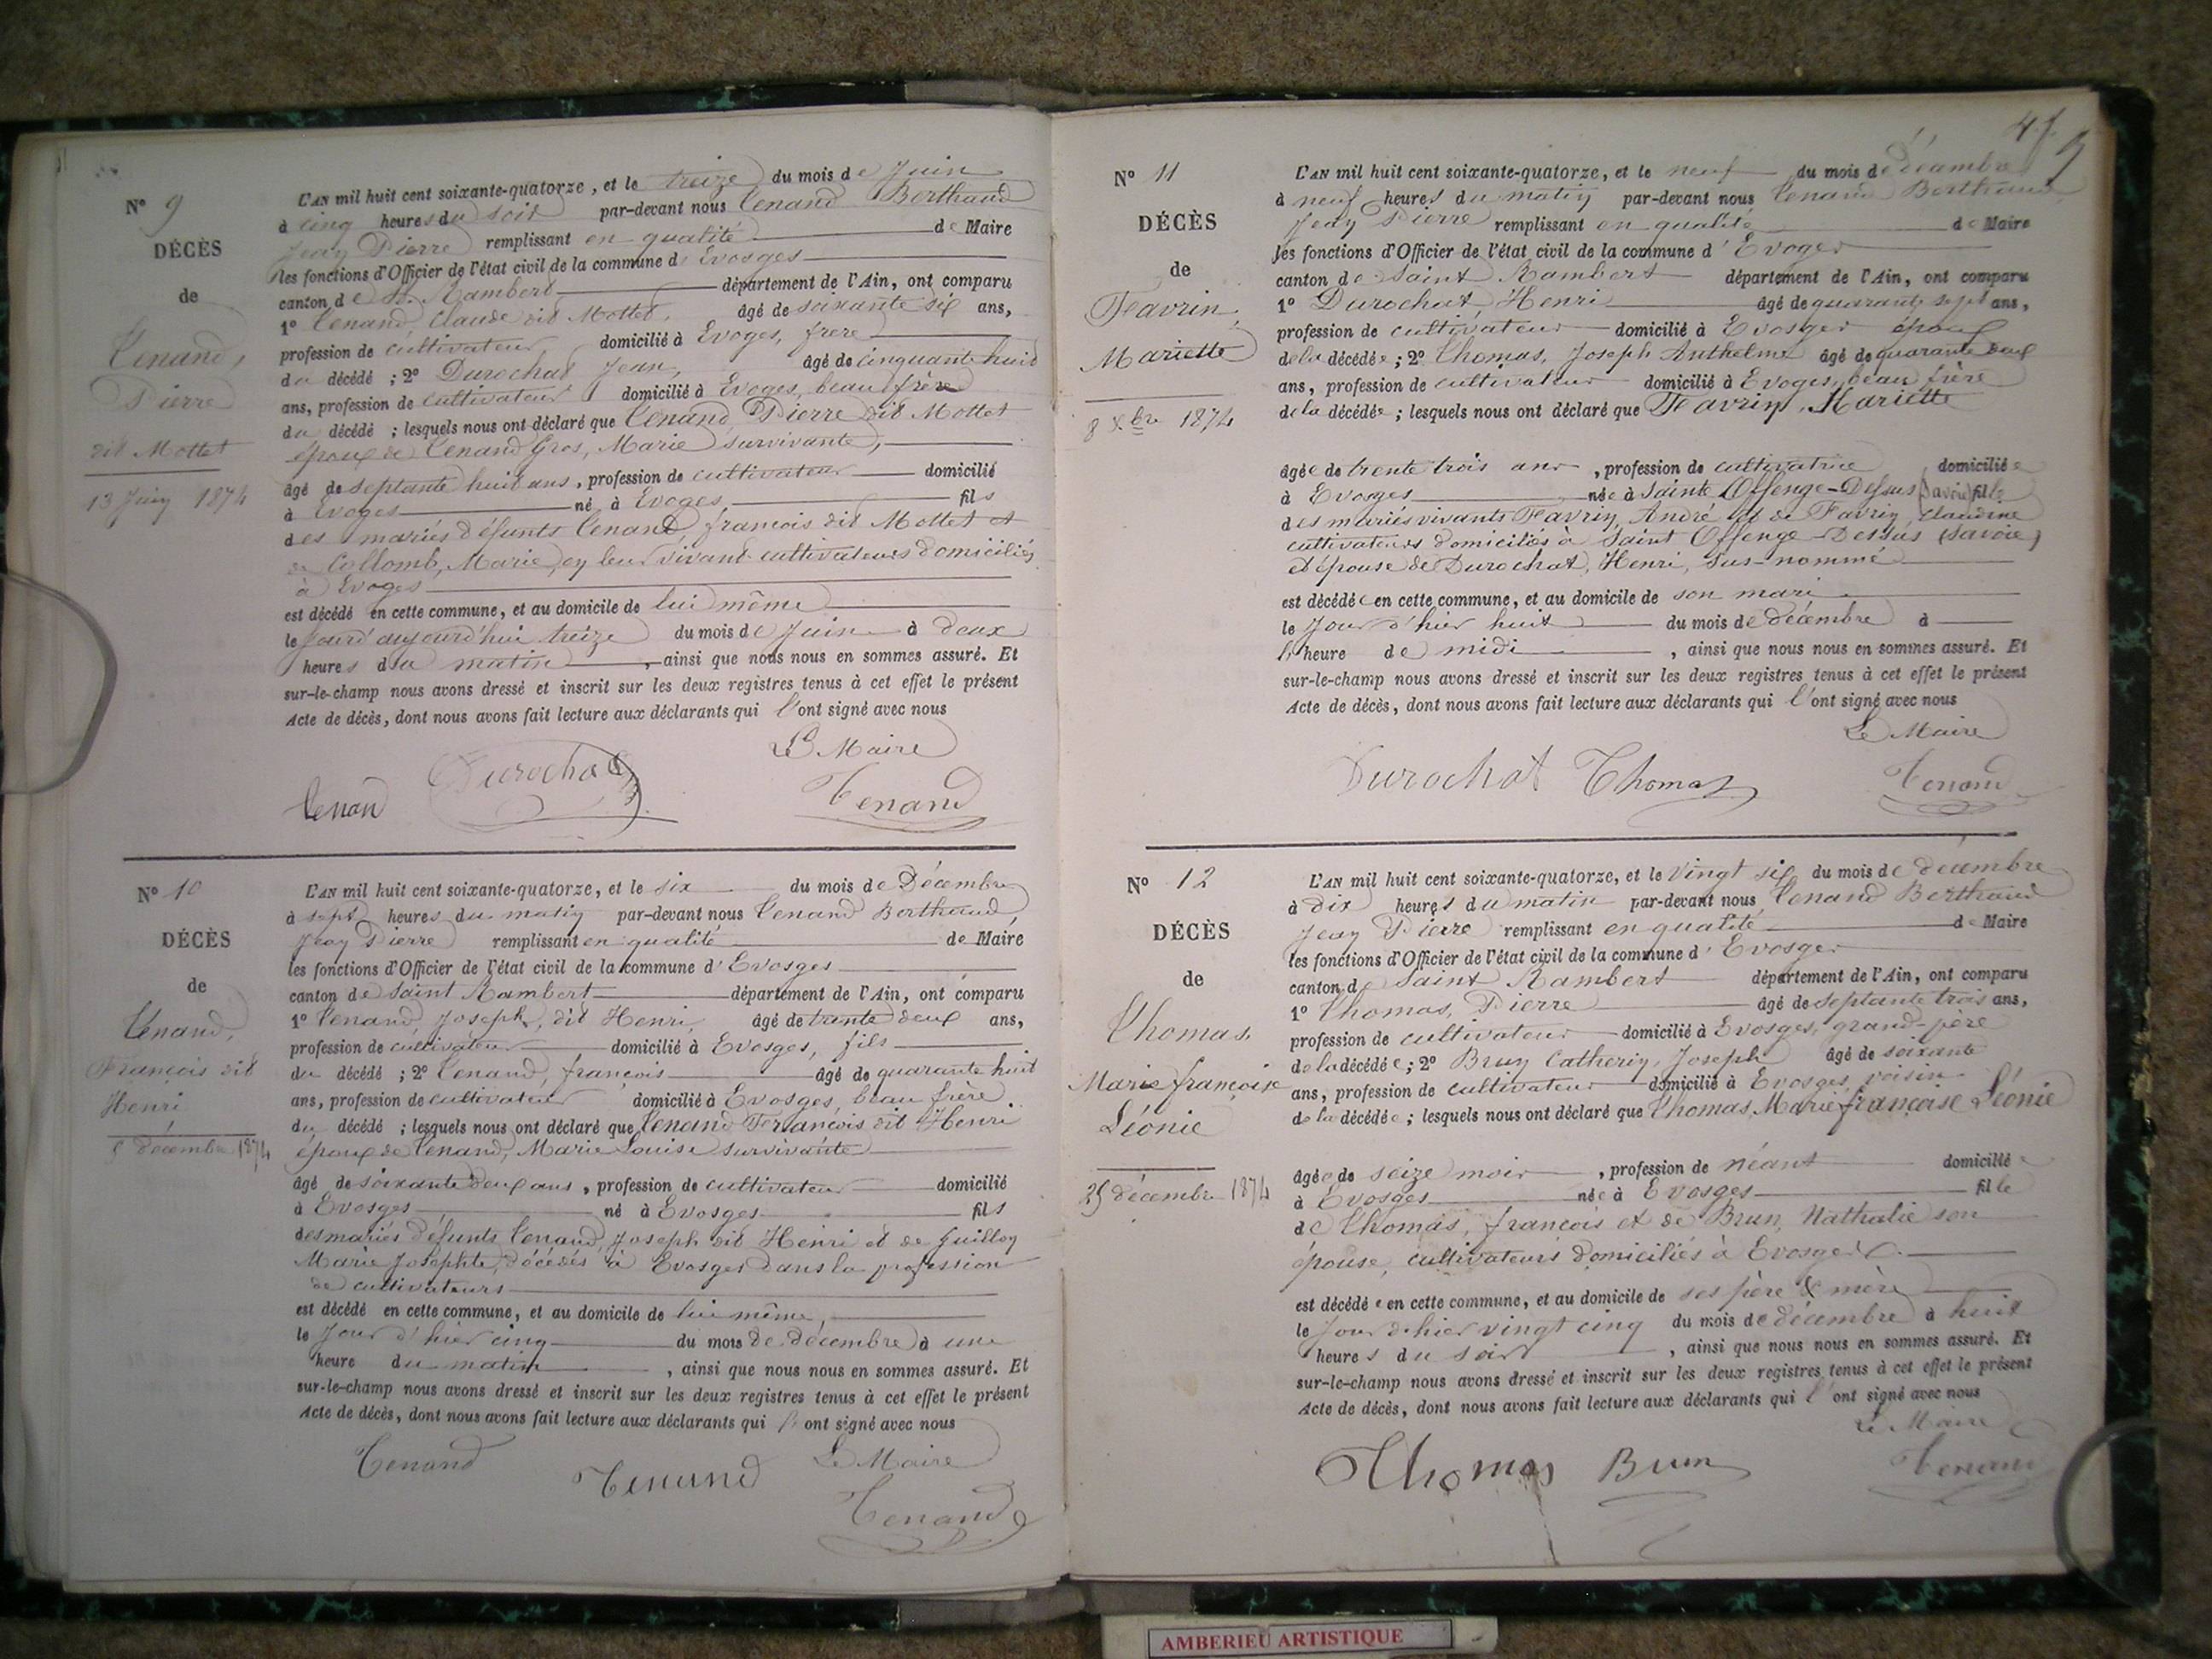 Nº 9
DÉCÈS
de
Tenand,
Pierre
dit Mottet
13 Juin 1874
L'AN mil huit cent soixante-quatorze, et le treize du mois de Juin
à cinq heures du soir par-devant nous Tenand Berthaud
Jean Pierre remplissant en qualité de Maire
les fonctions d'Officier de l'état civil de la commune d'Evosges
canton de St. Rambert département de l'Ain, ont comparu
1º Tenand, Claude dit Mottet, âgé de soixante six ans,
profession de cultivateur domicilié à Evoges, frère
du décédé ; 2º Durochat Jean, âgé de cinquante huit
ans, profession de cultivateur domicilié à Evoges, beau frère
du décédé ; lesquels nous ont déclaré que Tenand, Pierre dit Mottet
époux de Tenand Gros, Marie survivante,
âgé de septante huit ans, profession de cultivateur domicilié
à Evoges né à Evoges fils
des mariés défunts Tenand, françois dit Mottet et
de Collomb, Marie, en leur vivant cultivateurs domiciliés
à Evoges
est décédé en cette commune, et au domicile de lui même
le jourd'aujourd'hui treize du mois de Juin à deux
heures du matin, ainsi que nous nous en sommes assuré. Et
sur-le-champ nous avons dressé et inscrit sur les deux registres tenus à cet effet le présent
Acte de décès, dont nous avons fait lecture aux déclarants qui l'ont signé avec nous
Le Maire
Tenand Durochat Tenand
Nº 10
DÉCÈS
de
Tenand,
François dit
Henri
5 décembre 1874
L'AN mil huit cent soixante-quatorze, et le six du mois de Décembre
à sept heures du matin par-devant nous Tenand Berthaud,
Jean Pierre remplissant en qualité de Maire
les fonctions d'Officier de l'état civil de la commune d'Evosges
canton de Saint Rambert département de l'Ain, ont comparu
1º Tenand, Joseph, dit Henri, âgé de trente deux ans,
profession de cultivateur domicilié à Evosges, fils
du décédé ; 2º Tenand, françois âgé de quarante huit
ans, profession de cultivateur domicilié à Evosges, beau frère
du décédé ; lesquels nous ont déclaré que Tenand François dit Henri
époux de Tenand, Marie Louise survivante
âgé de soixante deux ans, profession de cultivateur domicilié
à Evosges né à Evosges fils
des mariés défunts Tenand, Joseph dit Henri et de Guillon
Marie Josephte, décédés à Evosges dans la profession
de cultivateurs
est décédé en cette commune, et au domicile de lui même,
le Jour d'hier cinq du mois de décembre à une
heure du matin, ainsi que nous nous en sommes assuré. Et
sur-le-champ nous avons dressé et inscrit sur les deux registres tenus à cet effet le présent
Acte de décès, dont nous avons fait lecture aux déclarants qui l'ont signé avec nous
Le Maire
Tenand Tenand Tenand
Nº 11
DÉCÈS
de
Favrin,
Mariette
8 Xbre 1874
L'AN mil huit cent soixante-quatorze, et le neuf du mois de Décembre
à neuf heures du matin par-devant nous Tenand Berthaud
Jean Pierre remplissant en qualité de Maire
les fonctions d'Officier de l'état civil de la commune d'Evoges
canton de Saint Rambert département de l'Ain, ont comparu
1º Durochat, Henri âgé de quarante sept ans,
profession de cultivateur domicilié à Evosges époux
de la décédée ; 2º Thomas, Joseph Anthelme âgé de quarante deux
ans, profession de cultivateur domicilié à Evoges, beau frère
de la décédée ; lesquels nous ont déclaré que Favrin, Mariette
âgée de trente trois ans, profession de cultivatrice domiciliée
à Evosges née à Saint Offenge-Dessus (Savoie) fille
des mariés vivants Favrin, André et de Favrin, Claudine
cultivateurs domiciliés à Saint Offenge-Dessus (Savoie)
et épouse de Durochat, Henri, sus-nommé
est décédée en cette commune, et au domicile de son mari
le Jour d'hier huit du mois de décembre à
l'heure de midi, ainsi que nous nous en sommes assuré. Et
sur-le-champ nous avons dressé et inscrit sur les deux registres tenus à cet effet le présent
Acte de décès, dont nous avons fait lecture aux déclarants qui l'ont signé avec nous
Le Maire
Durochat Thomas Tenand
Nº 12
DÉCÈS
de
Thomas,
Marie françoise
Léonie
25 décembre 1874
L'AN mil huit cent soixante-quatorze, et le vingt six du mois de décembre
à dix heures du matin par-devant nous Tenand Berthaud
Jean Pierre remplissant en qualité de Maire
les fonctions d'Officier de l'état civil de la commune d'Evosges
canton de Saint Rambert département de l'Ain, ont comparu
1º Thomas, Pierre âgé de septante trois ans,
profession de cultivateur domicilié à Evosges, grand-père
de la décédée ; 2º Brun Catherin, Joseph âgé de soixante
ans, profession de cultivateur domicilié à Evosges, voisin
de la décédée ; lesquels nous ont déclaré que Thomas, Marie françoise Léonie
âgée de seize mois, profession de néant domiciliée
à Evosges née à Evosges fille
de Thomas, françois et de Brun, Nathalie son
épouse, cultivateurs domiciliés à Evosges
est décédée en cette commune, et au domicile de ses père & mère
le Jour d'hier vingt cinq du mois de décembre à huit
heures du soir, ainsi que nous nous en sommes assuré. Et
sur-le-champ nous avons dressé et inscrit sur les deux registres tenus à cet effet le présent
Acte de décès, dont nous avons fait lecture aux déclarants qui l'ont signé avec nous
Le Maire
Thomas Brun Tenand
AMBERIEU ARTISTIQUE